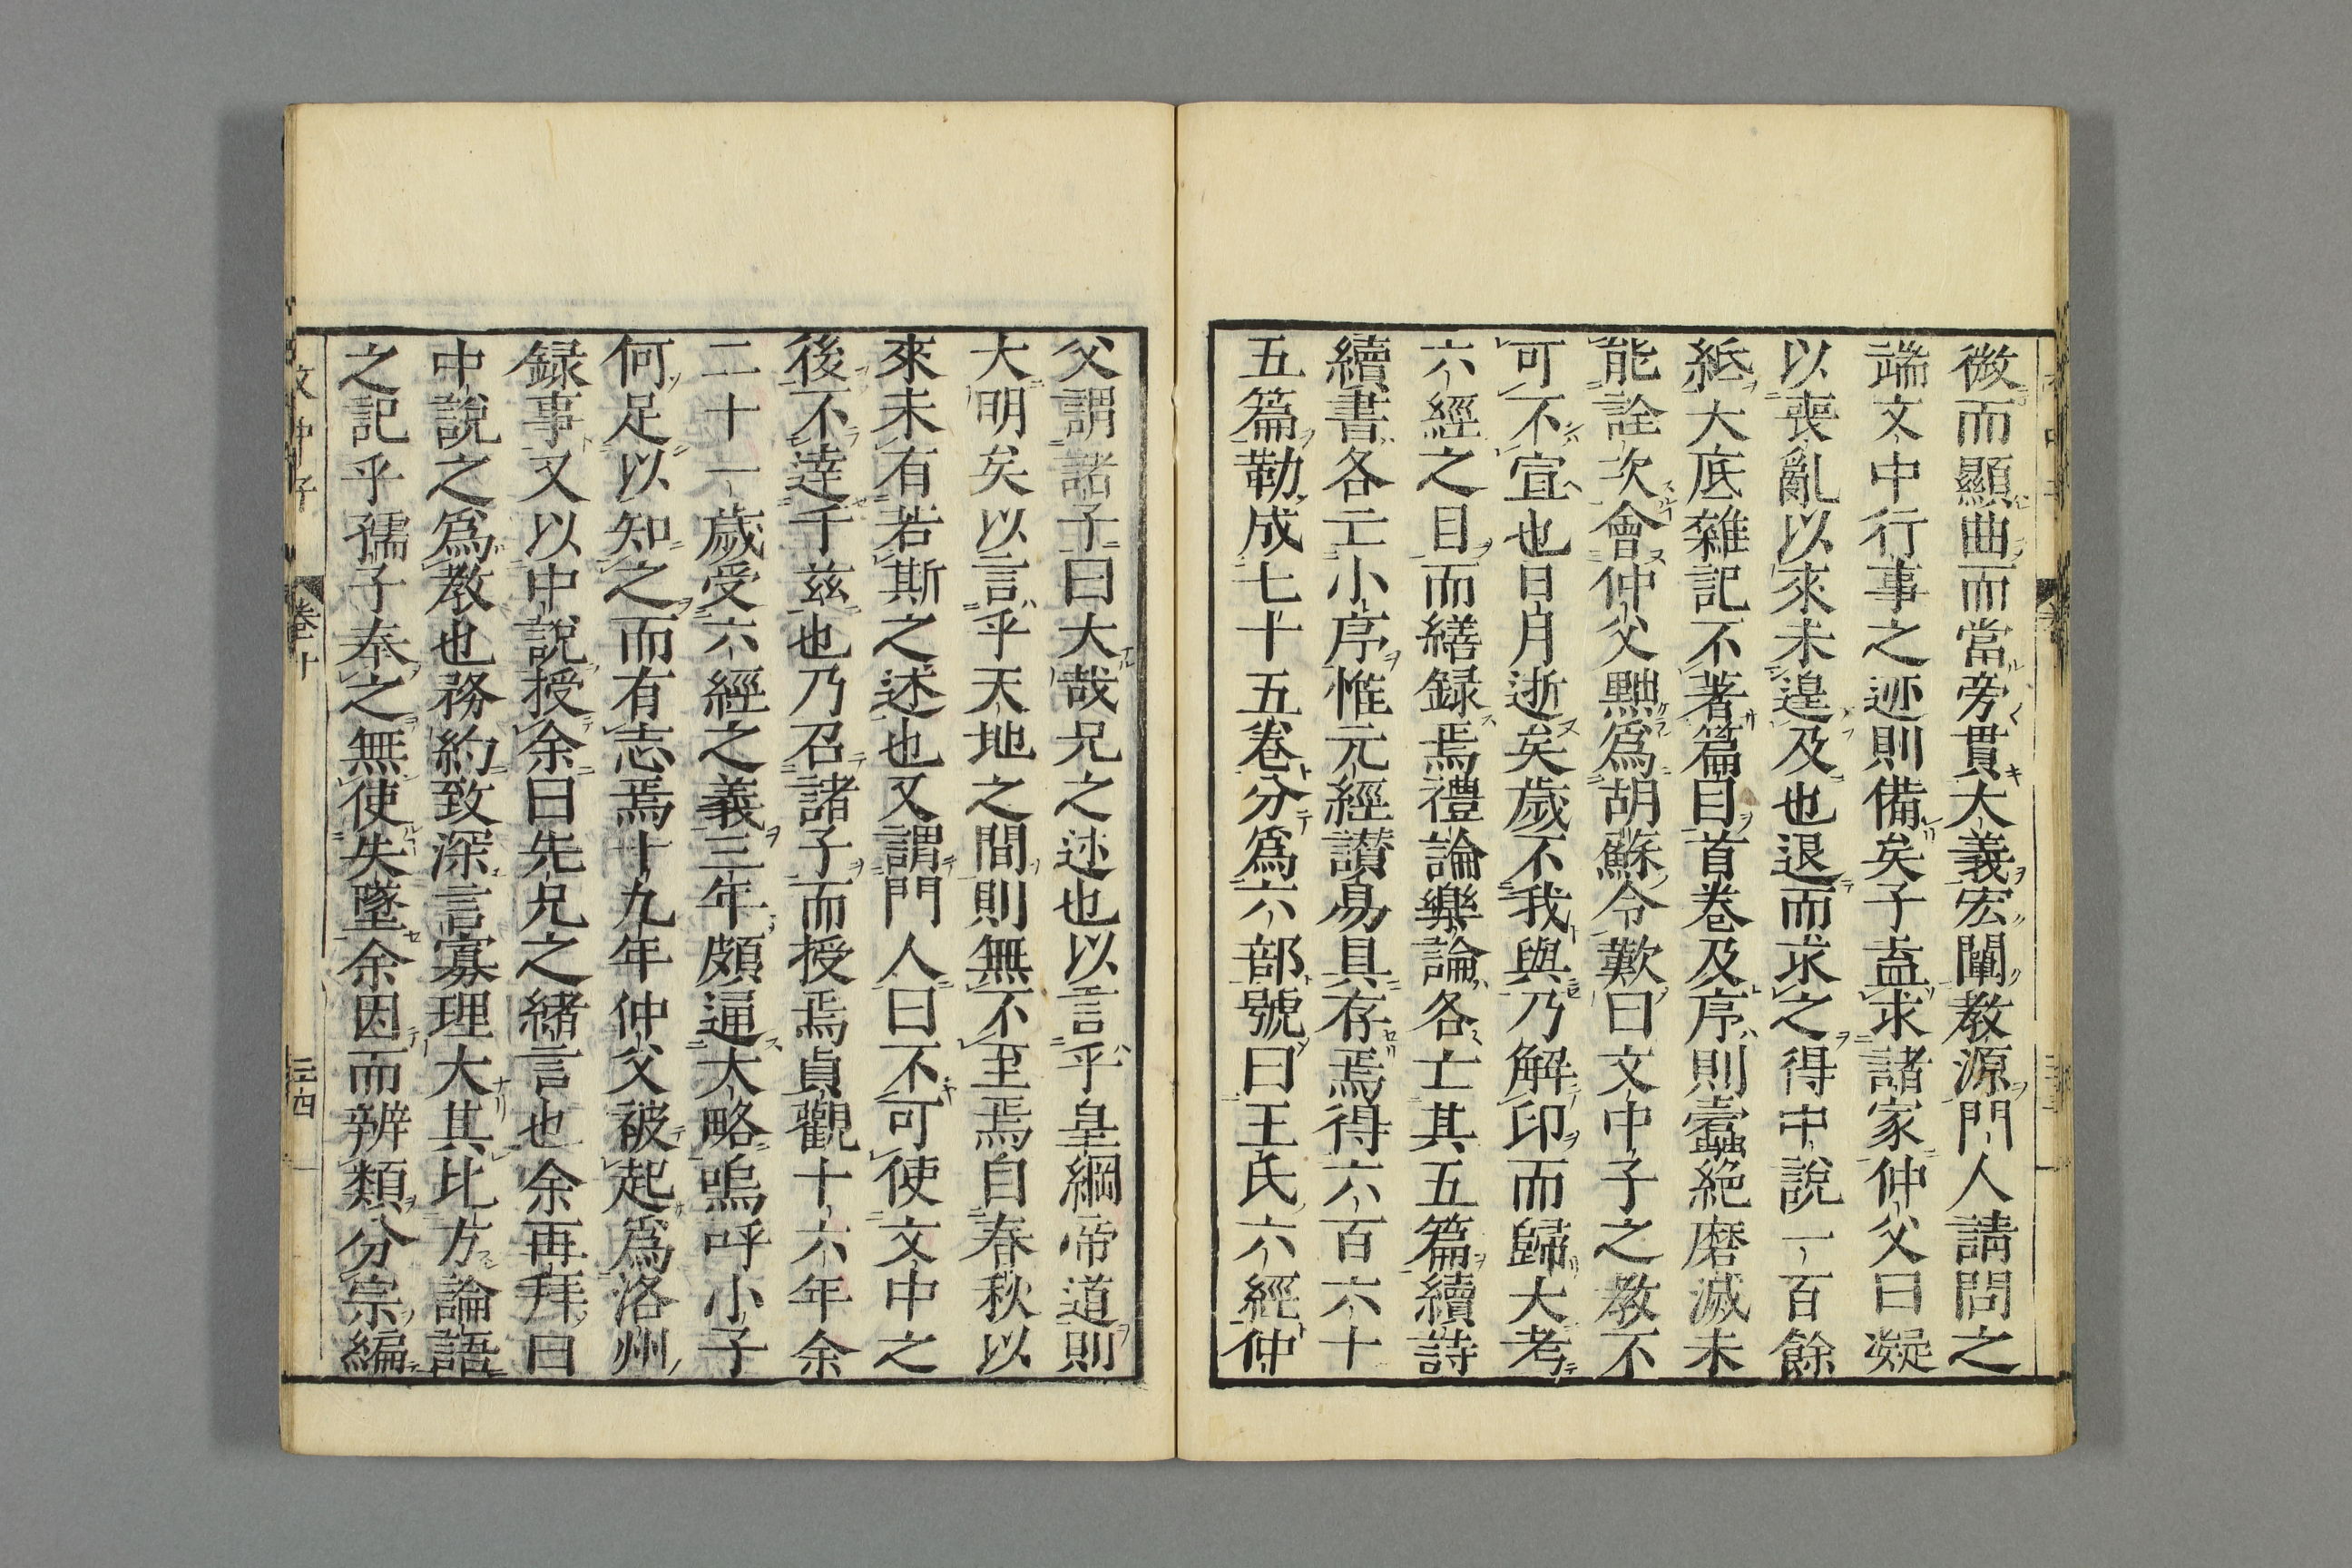 微而顯曲而當旁貫大義宏闡教源門人請問之
端文中行事之迹則備矣子盍求諸家仲父曰凝
以喪亂以來未遑及也退而求之得中說一百餘
紙大底雜記不著篇目首卷及序則蠹絶磨滅未
能詮次會仲父黜爲胡蘇令歎曰文中子之教不
可不宣也日月逝矣歲不我與乃解印而歸大考
六經之目而繕録焉禮論樂論各亡其五篇續詩
續書各亡小序惟元經讃易具存焉得六百六十
五篇勒成七十五卷分爲六部號曰王氏六經仲
父謂諸子曰大哉兄之述也以言乎皇綱帝道則
大明矣以言乎天地之間則無不至焉自春秋以
來未有若斯之述也又謂門人曰不可使文中之
後不達于兹也乃召諸子而授焉貞觀十六年余
二十一歲受六經之義三年頗通大略嗚呼小子
何足以知之而有志焉十九年仲父被起爲洛州
録事又以中說授余曰先兄之緒言也余再拜曰
中說之爲教也務約致深言寡理大其比方論語
之記乎孺子奉之無使失墜余因而辨類分宗編
文中子
卷十
三四